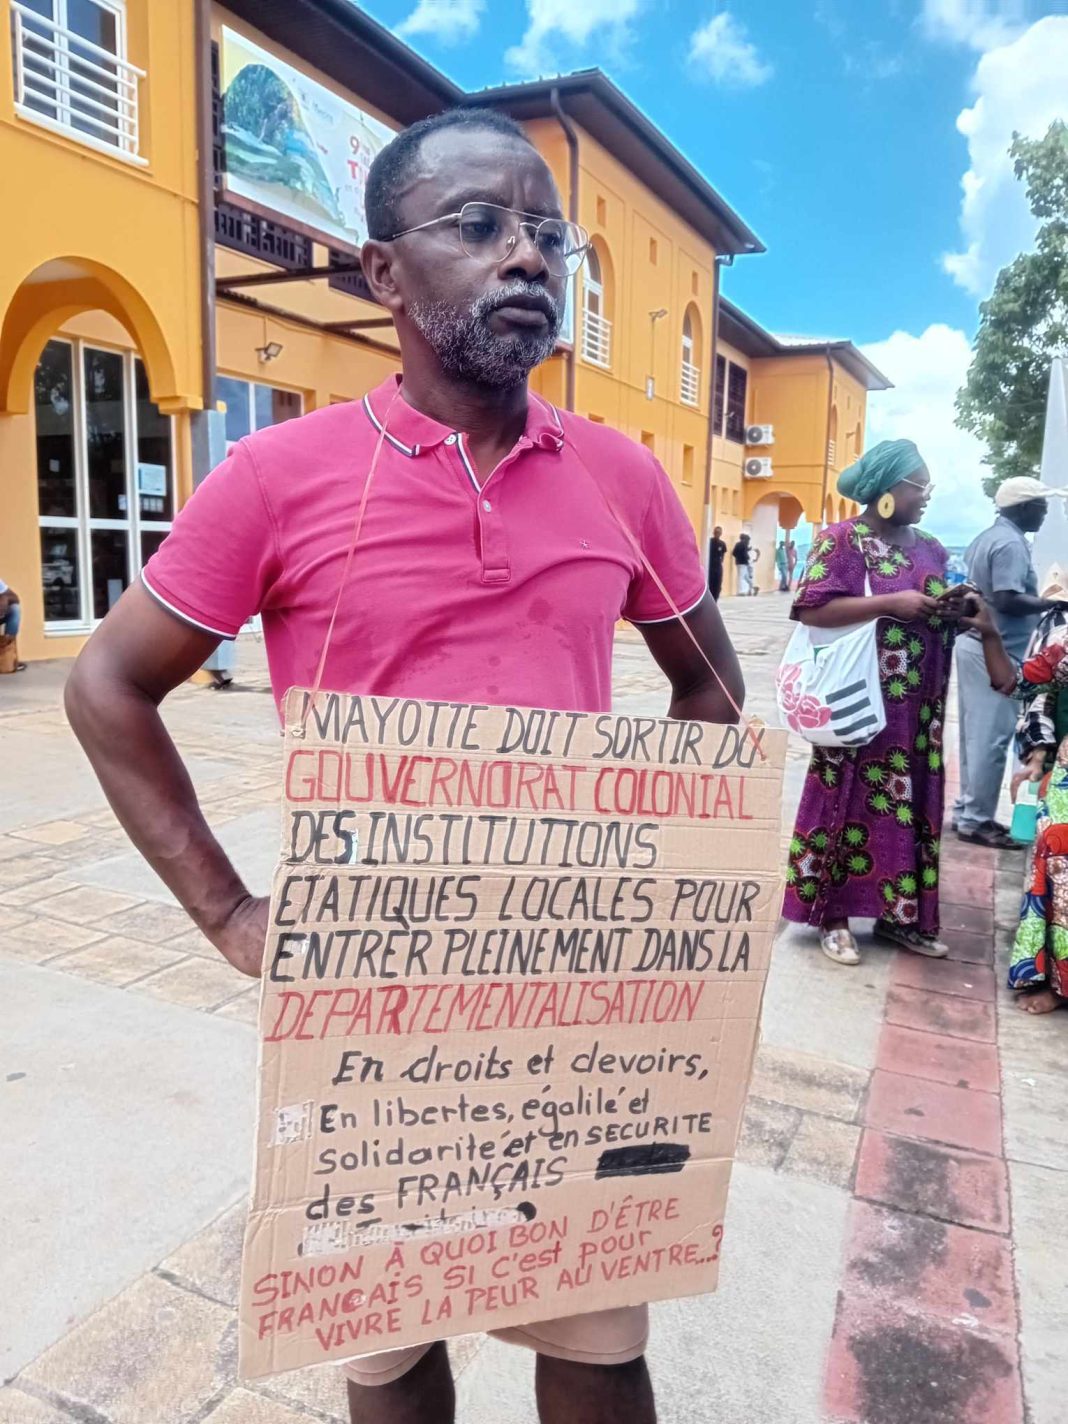 9
MAYOTTE DOIT SORTIR DU
GOUVERNORAT COLONIAL
DES INSTITUTIONS
ETATIQUES LOCALES POUR
ENTRER PLEINEMENT DANS LA
DEPARTEMENTALISATION
En droits et devoirs,
En libertes, égalité et
solidarité et en SECURITE
des FRANÇAIS
SINON À QUOI BON D'ÊTRE
FRANCAIS SI C'est pour
VIVRE LA PEUR AU VENTRE...?